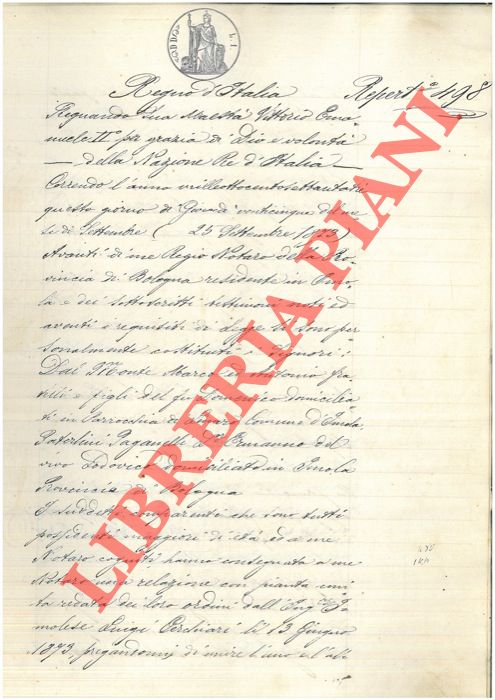 Regno d'Italia Repert.º 498
Regnando Sua Maestà Vittorio Ema=
nuele IIº per grazia di Dio e volontà
della Nazione Re d'Italia
Correndo l'anno milleottocentosettantatrè
questo giorno di Giovedì venticinque del me=
se di Settembre (25 Settembre 1873)
Avanti di me Regio Notaro della Pro=
vincia di Bologna residente in Imo=
la e dei sottoscritti testimoni noti ed
aventi i requisiti di legge si sono per=
sonalmente costituiti i Signori:
Dal Monte Marco ed Antonio fra=
telli e figli del fu Domenico domicilia=
ti in Parrocchia di Comune d'Imola
Paterlini Paganelli Ermanno del
vivo Lodovico domiciliato in Imola
Provincia di Bologna
I suddetti comparenti che sono tutti
possidenti maggiori di età ed a me
Notaro cogniti hanno consegnata a me
Notaro una relazione con pianta uni=
ta redata dei loro ordini dall'Ing.re I=
molese Luigi Cerchiari li 13 Giugno
1873, pregandomi di unire l'uno e l'al=
LIBRERIA PIANI